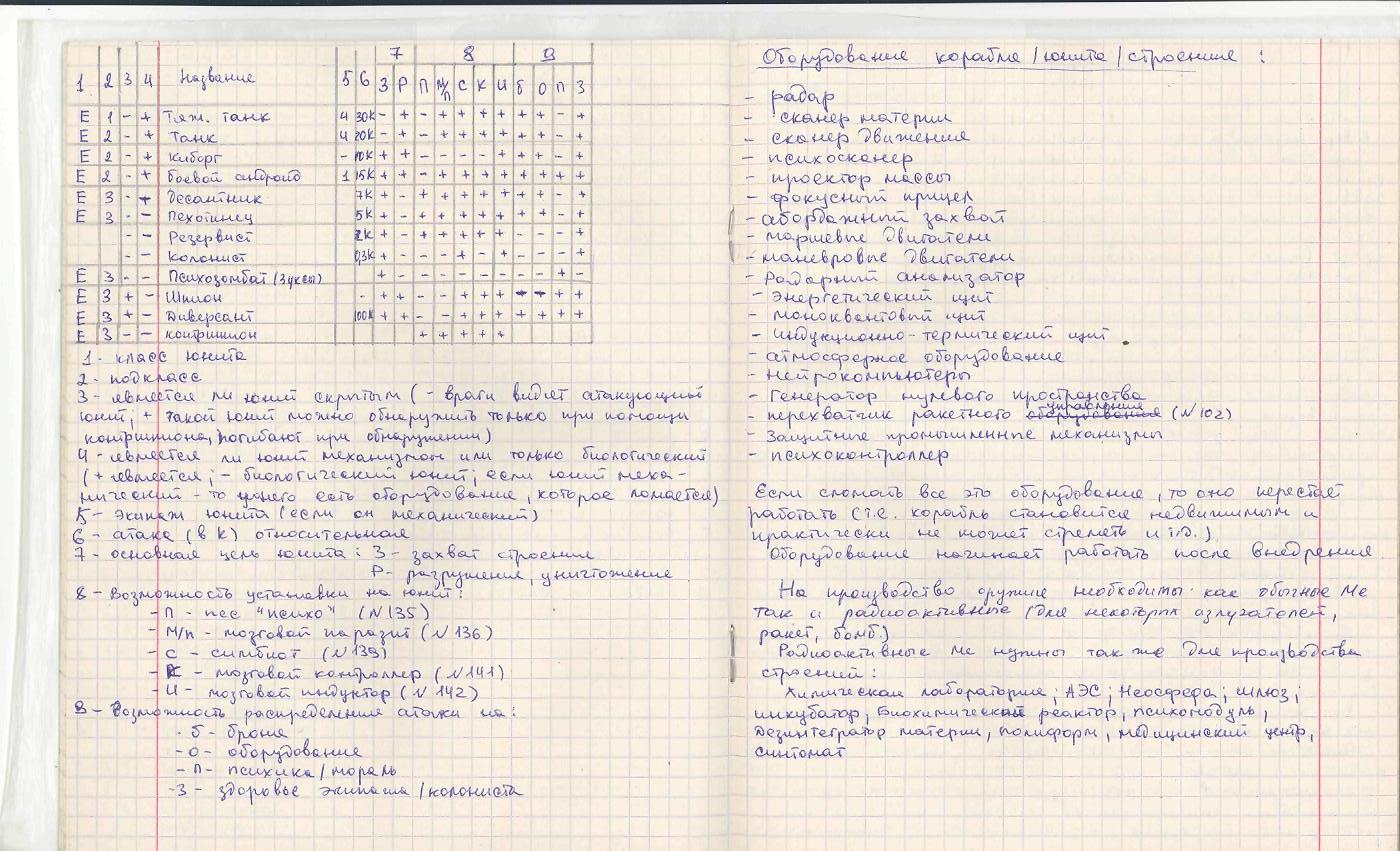 7 8 9
1 2 3 4 Название 5 6 З Р П М/п С К И б О п З
E 1 - + Тяж. танк 4 30к - + - + + + + + + - +
E 2 - + Танк 4 20к - + - + + + + + + - +
E 2 - + Киборг - 10к + + - - - - + + + - +
E 2 - + боевой андроид 1 15к + + - + + + + + + + +
E 3 - + Десантник 7к + - + + + + + + + - +
E 3 - - Пехотинец 5к + - + + + + + + + - +
- - Резервист 2к + - + + + + + - - - +
- - Колонист 0,3к + - - - + - + - - - +
E 3 - - Психозомбат (Зуксы) + - - - - - - - - + -
E 3 + - Шпион - + + - - + + + + + + +
E 3 + - Диверсант 100к + + - - + + + + + + +
E 3 - - контршпион + + + + +
1 - класс юнита
2 - подкласс
3 - является ли юнит скрытым (- враги видят атакующий
юнит; + такой юнит можно обнаружить только при помощи
контршпиона, погибают при обнаружении)
4 - является ли юнит механизмом или только биологический
(+ является; - биологический юнит; если юнит меха-
нический - то у него есть оборудование, которое ломается)
5 - экипаж юнита (если он механический)
6 - атака (в к) относительная
7 - основная цель юнита: З - захват строения
Р - разрушение, уничтожение
8 - Возможность установки на юнит:
- П - пес "психо" (N135)
- М/п - мозговой паразит (N136)
- С - симбиот (N139)
- К - мозговой контроллер (N141)
- И - мозговой индуктор (N142)
9 - Возможность распределения атаки на:
- б - броня
- о - оборудование
- п - психика/мораль
- З - здоровье экипажа/колониста
Оборудование корабля/юнита/строения:
- радар
- сканер материи
- сканер движения
- психосканер
- проектор массы
- фокусный прицел
- абордажный захват
- маршевые двигатели
- маневровые двигатели
- Радарный анализатор
- Энергетический щит
- моноквантовый щит
- индукционно-термический щит
- атмосферное оборудование
- Нейрокомпьютеры
- Генератор нулевого пространства
- перехватчик ракетного оборудования управления (N102)
- Защитные промышленные механизмы
- психоконтроллер
Если сломать все это оборудование, то оно перестает
работать (т.е. корабль становится недвижимым и
практически не может стрелять и т.д.)
Оборудование начинает работать после внедрения.
На производство оружия необходимы как обычные Ме
так и радиоактивные (для некоторых излучателей,
ракет, бомб.)
Радиоактивные Ме нужны так же для производства
строений:
Химическая лаборатория; АЭС; Неосфера; шлюз;
инкубатор, Биохимический реактор, психомодуль,
Дезинтегратор материи, полиформ, медицинский центр,
синтомат